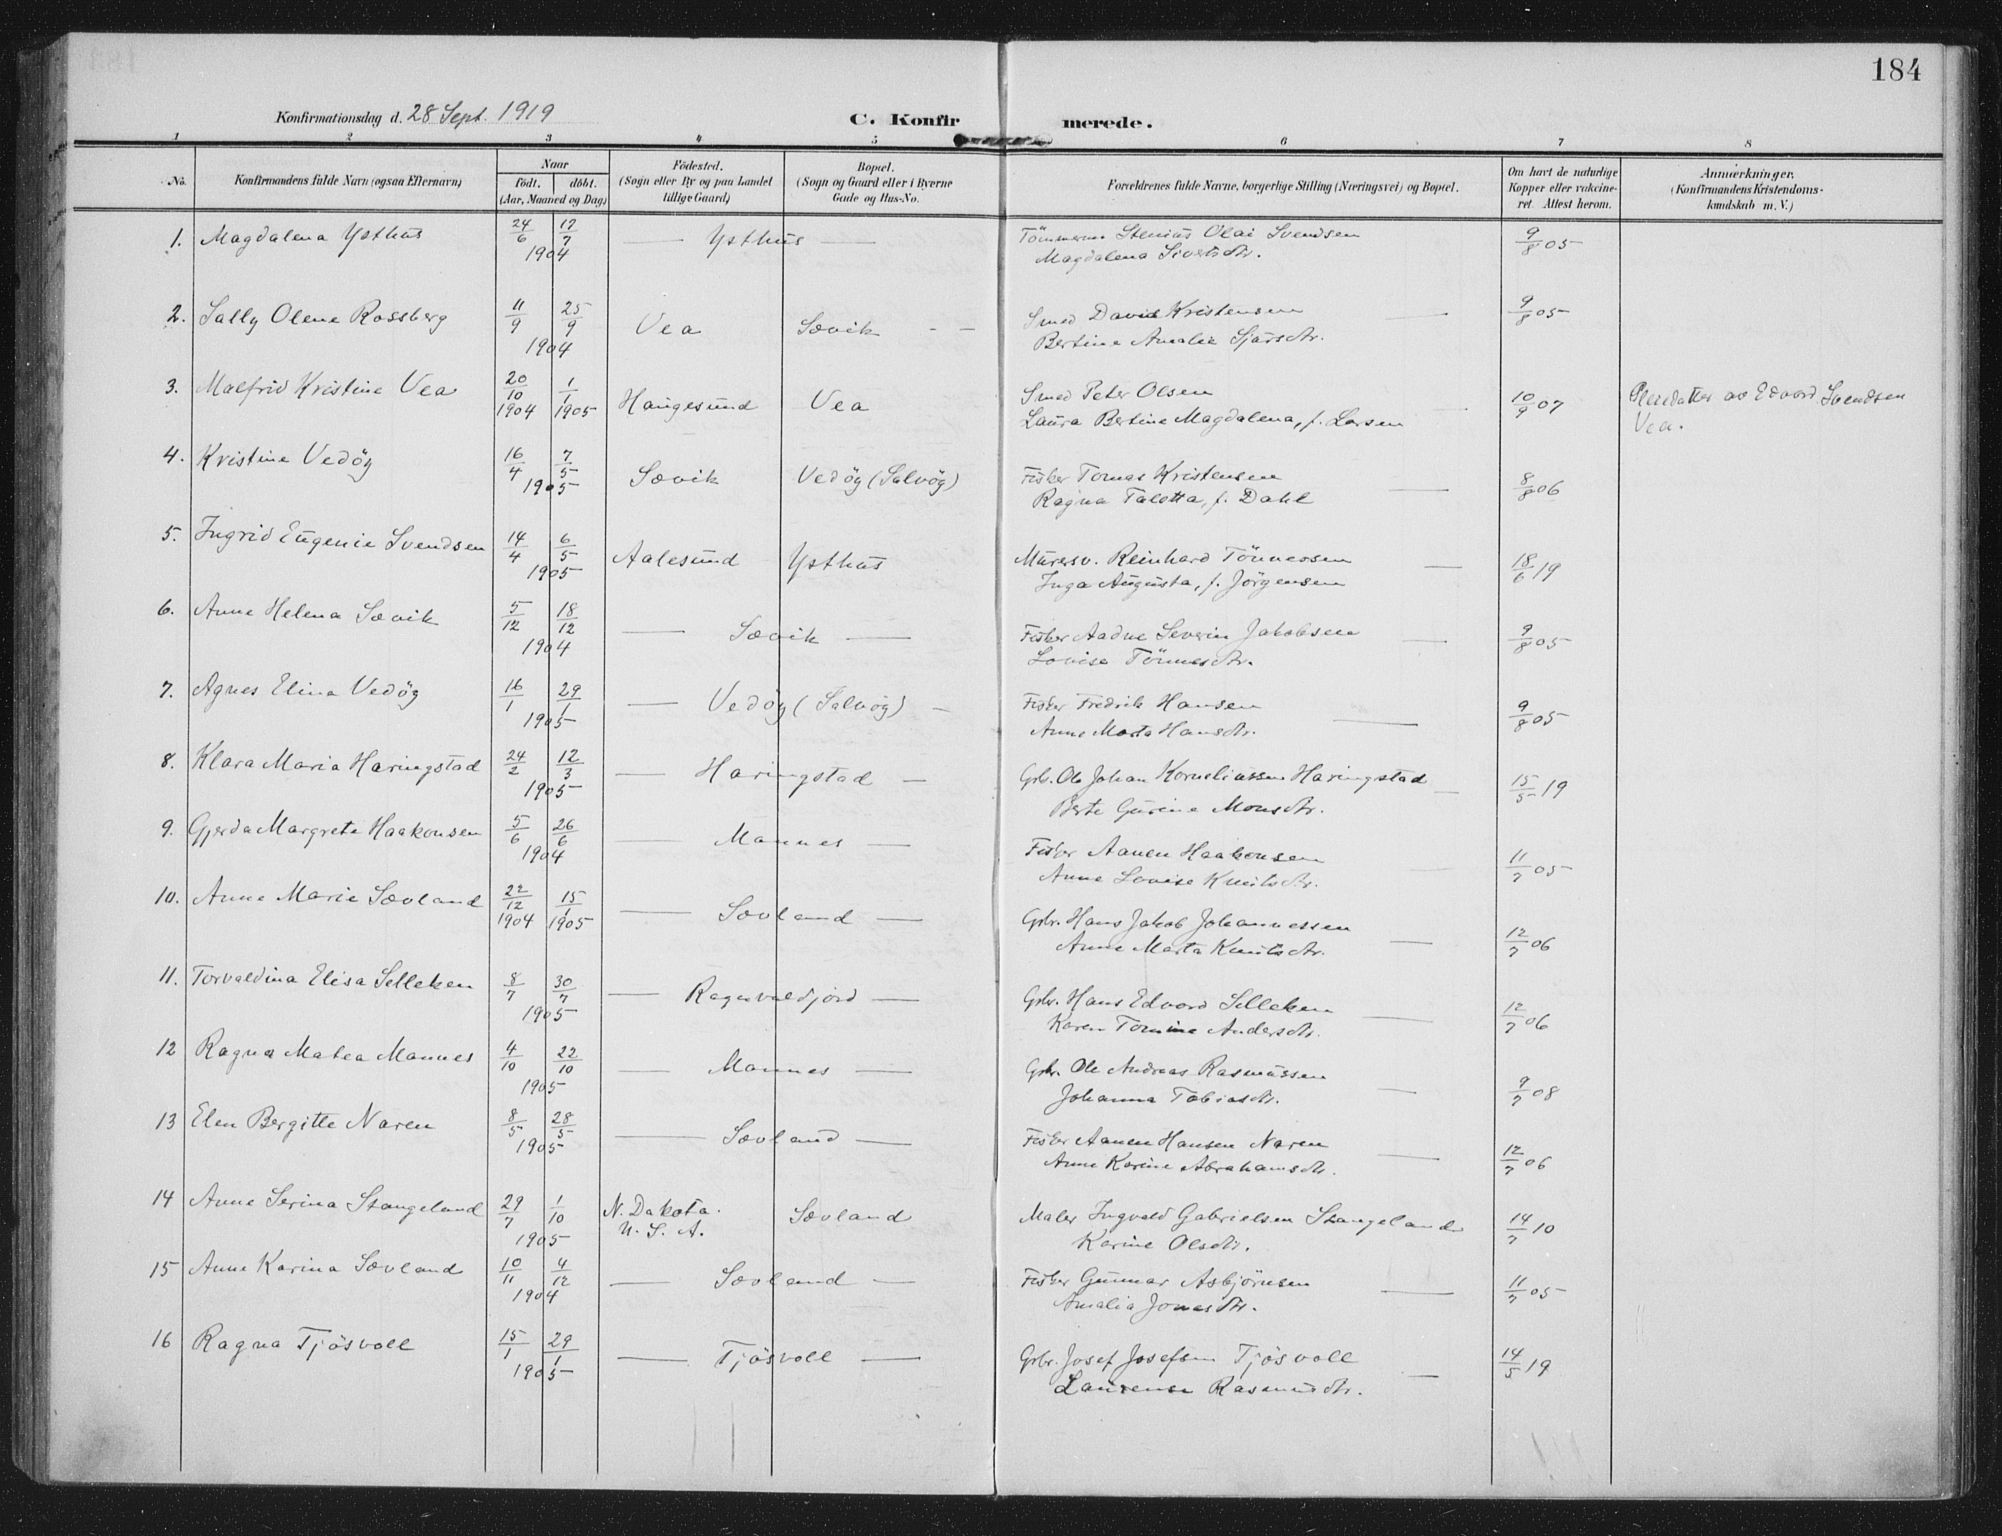 184
Konfirmationsdag d. 28 Sept. 1919
C. Konfirmerede.
1 2 3 4 5 6 7 8
No.
Konfirmandens fulde Navn (ogsaa Efternavn)
Naar
födt. döbt.
(Aar, Maaned og Dag)
Födested.
(Sogn eller By og paa Landet
tillige Gaard)
Bopæl.
(Sogn og Gaard eller i Byerne
Gade og Hus-No.
Forældrenes fulde Navne, borgerlige Stilling (Næringsvei) og Bopæl.
Om havt de naturlige
Kopper eller vakcine-
ret. Attest herom.
Anmærkninger.
(Konfirmandens Kristendoms-
kundskab m. V.)
1. Magdalena Ysthus 24/6 17/7 1904 — Ysthus — Tömmerm. Stenius Olai Svendsen 9/8 05
Magdalena Sivertsdtr.
2. Sally Olene Rossberg 11/9 25/9 1904 Vea Sævik - - Smed David Kristensen — 9/8 05
Bertine Amalie Sjursdtr.
3. Malfrid Kristine Vea 20/10 1904 1/1 1905 Haugesund Vea Smed Peter Olsen 10/9 07 Pleiedatter av Edvard Svendsen
Laura Bertine Magdalena, f. Larsen Vea.
4. Kristine Vedöy 16/4 7/5 1905 Sævik Vedöy (Salvöy) Fisker Tomas Kristensen — 8/8 06
Ragna Taletta, f. Dahl
5. Ingrid Eugenie Svendsen 14/4 6/5 1905 Aalesund Ysthus Murersv. Reinhard Tönnessen — 18/6 19
Inga Augusta, f. Jörgensen
6. Anne Helena Sævik 5/12 18/12 1904 — Sævik — Fisker Aadne Severin Jakobsen — 9/8 05
Lovise Tönnesdtr.
7. Agnes Elina Vedöy 16/1 29/1 1905 — Vedöy (Salvöy) — Fisker Fredrik Hansen — 9/8 05
Anne Marta Hansdtr.
8. Klara Maria Haringstad 24/2 12/3 1905 — Haringstad — Grb. Ole Johan Korneliussen Haringstad — 15/5 19
Berte Gurine Monsdtr.
9. Gjerda Margrete Haakonsen 5/6 26/6 1904 — Mannes — Fisker Aanen Haakonsen 11/7 05
Anne Lovise Knutsdtr.
10. Anne Marie Sævland 22/12 1904 15/1 1905 — Sævland — Grbr. Hans Jakob Johannessen — 12/7 06
Anne Marta Knutsdtr.
11. Torvaldina Elisa Selleken 8/7 30/7 1905 — Ragnvaldjord — Grbr. Hans Edvard Selleken — 12/7 06
Karen Tomine Andersdtr.
12 Ragna Matea Mannes 4/10 22/10 1905 — Mannes — Grbr. Ole Andreas Rasmussen — 9/7 08
Johanna Tobiasdtr.
13 Elen Bergitte Naren 8/5 28/5 1905 — Sævland — Fisker Aanen Hansen Naren — 12/7 06
Anne Karine Abrahamsdtr.
14 Anne Serina Stangeland 29/7 1/10 1905 N. Dakota. U. S. A. Sævland Maler Ingvald Gabrielsen Stangeland 14/7 10
Karine Olsdtr.
15 Anne Karina Sævland 10/11 4/12 1904 — Sævland — Fisker Gunnar Asbjörnsen — 11/7 05
Amalia Jonasdtr.
16 Ragna Tjösvoll 15/1 29/1 1905 — Tjösvoll — Grbr. Josef Josefsen Tjösvoll — 14/5 19
Laurense Rasmusdtr.